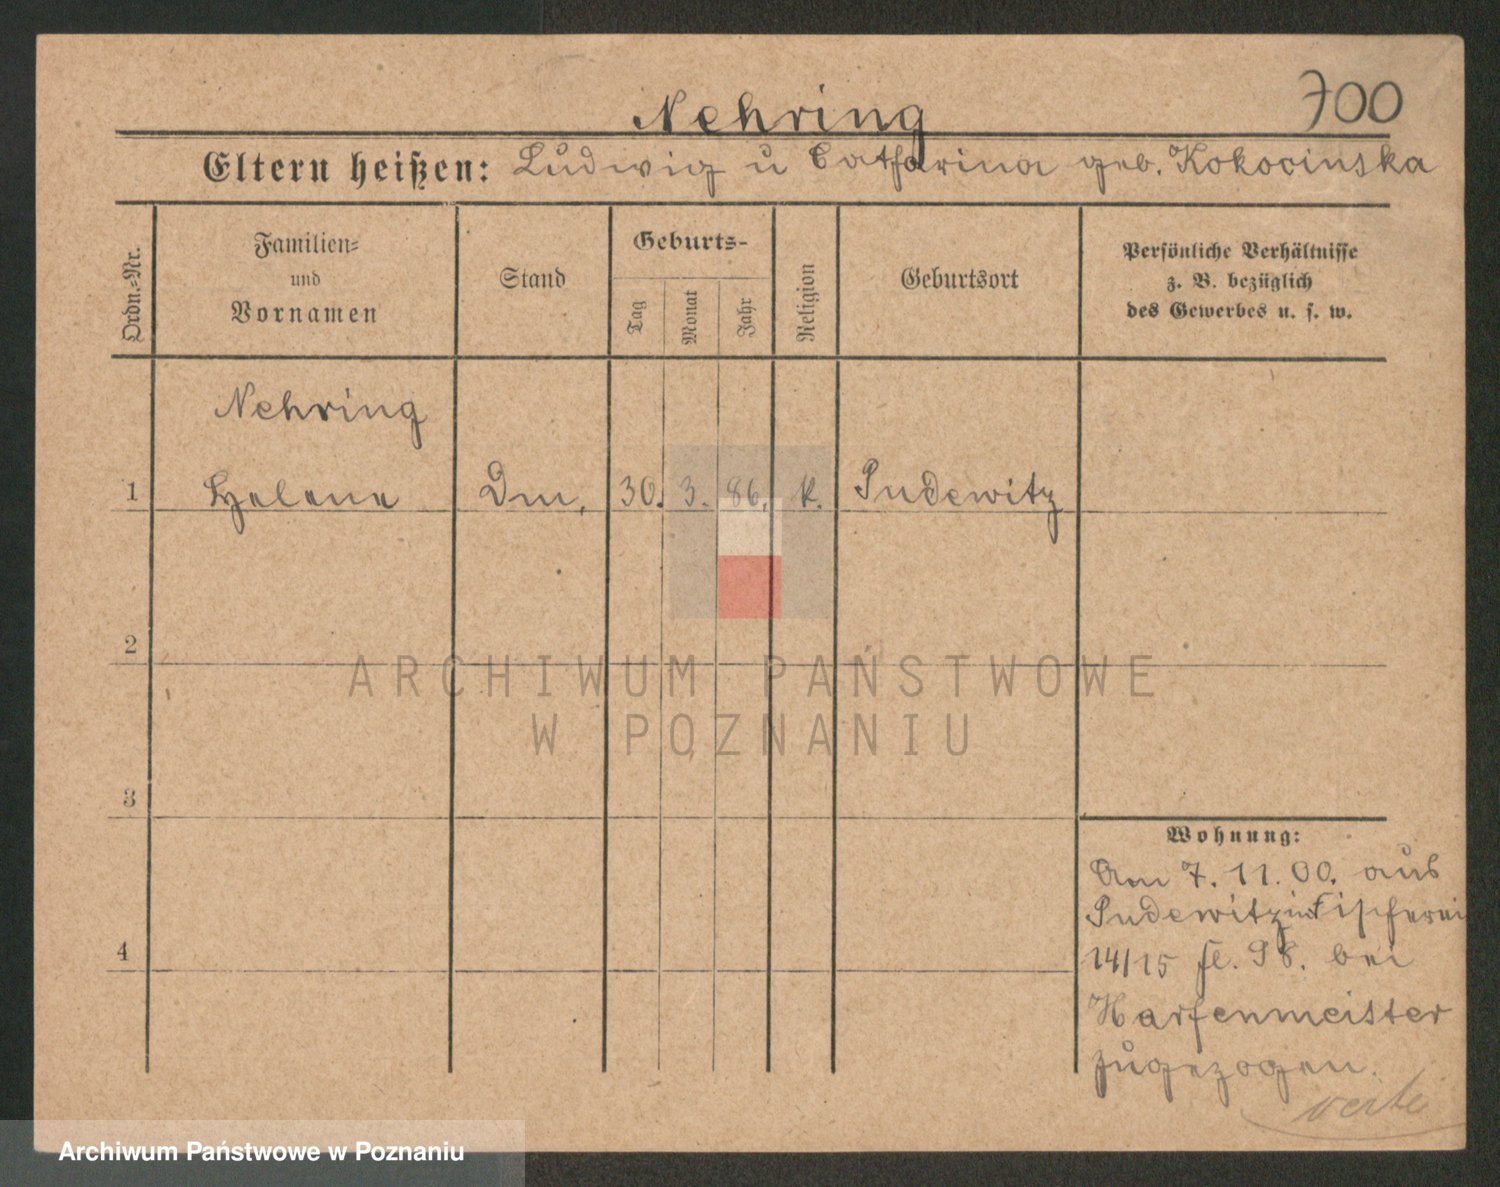 700
Nehring
Eltern heißen: Ludwig u Catharina geb. Kokocinska
Ordn.-Nr.
Familien-
und
Vornamen
Stand
Geburts-
Tag
Monat
Jahr
Religion
Geburtsort
Persönliche Verhältnisse
z. B. bezüglich
des Gewerbes u. s. w.
Nehring
1 Helene Dm, 30. 3. 86. k. Pudewitz
2
3
4
Wohnung:
Am 7. 11. 00. aus
Pudewitz in Fischerei
14/15 fl. 98. bei
Harfenmeister
zugezogen.
verte
ARCHIWUM PAŃSTWOWE
W POZNANIU
Archiwum Państwowe w Poznaniu